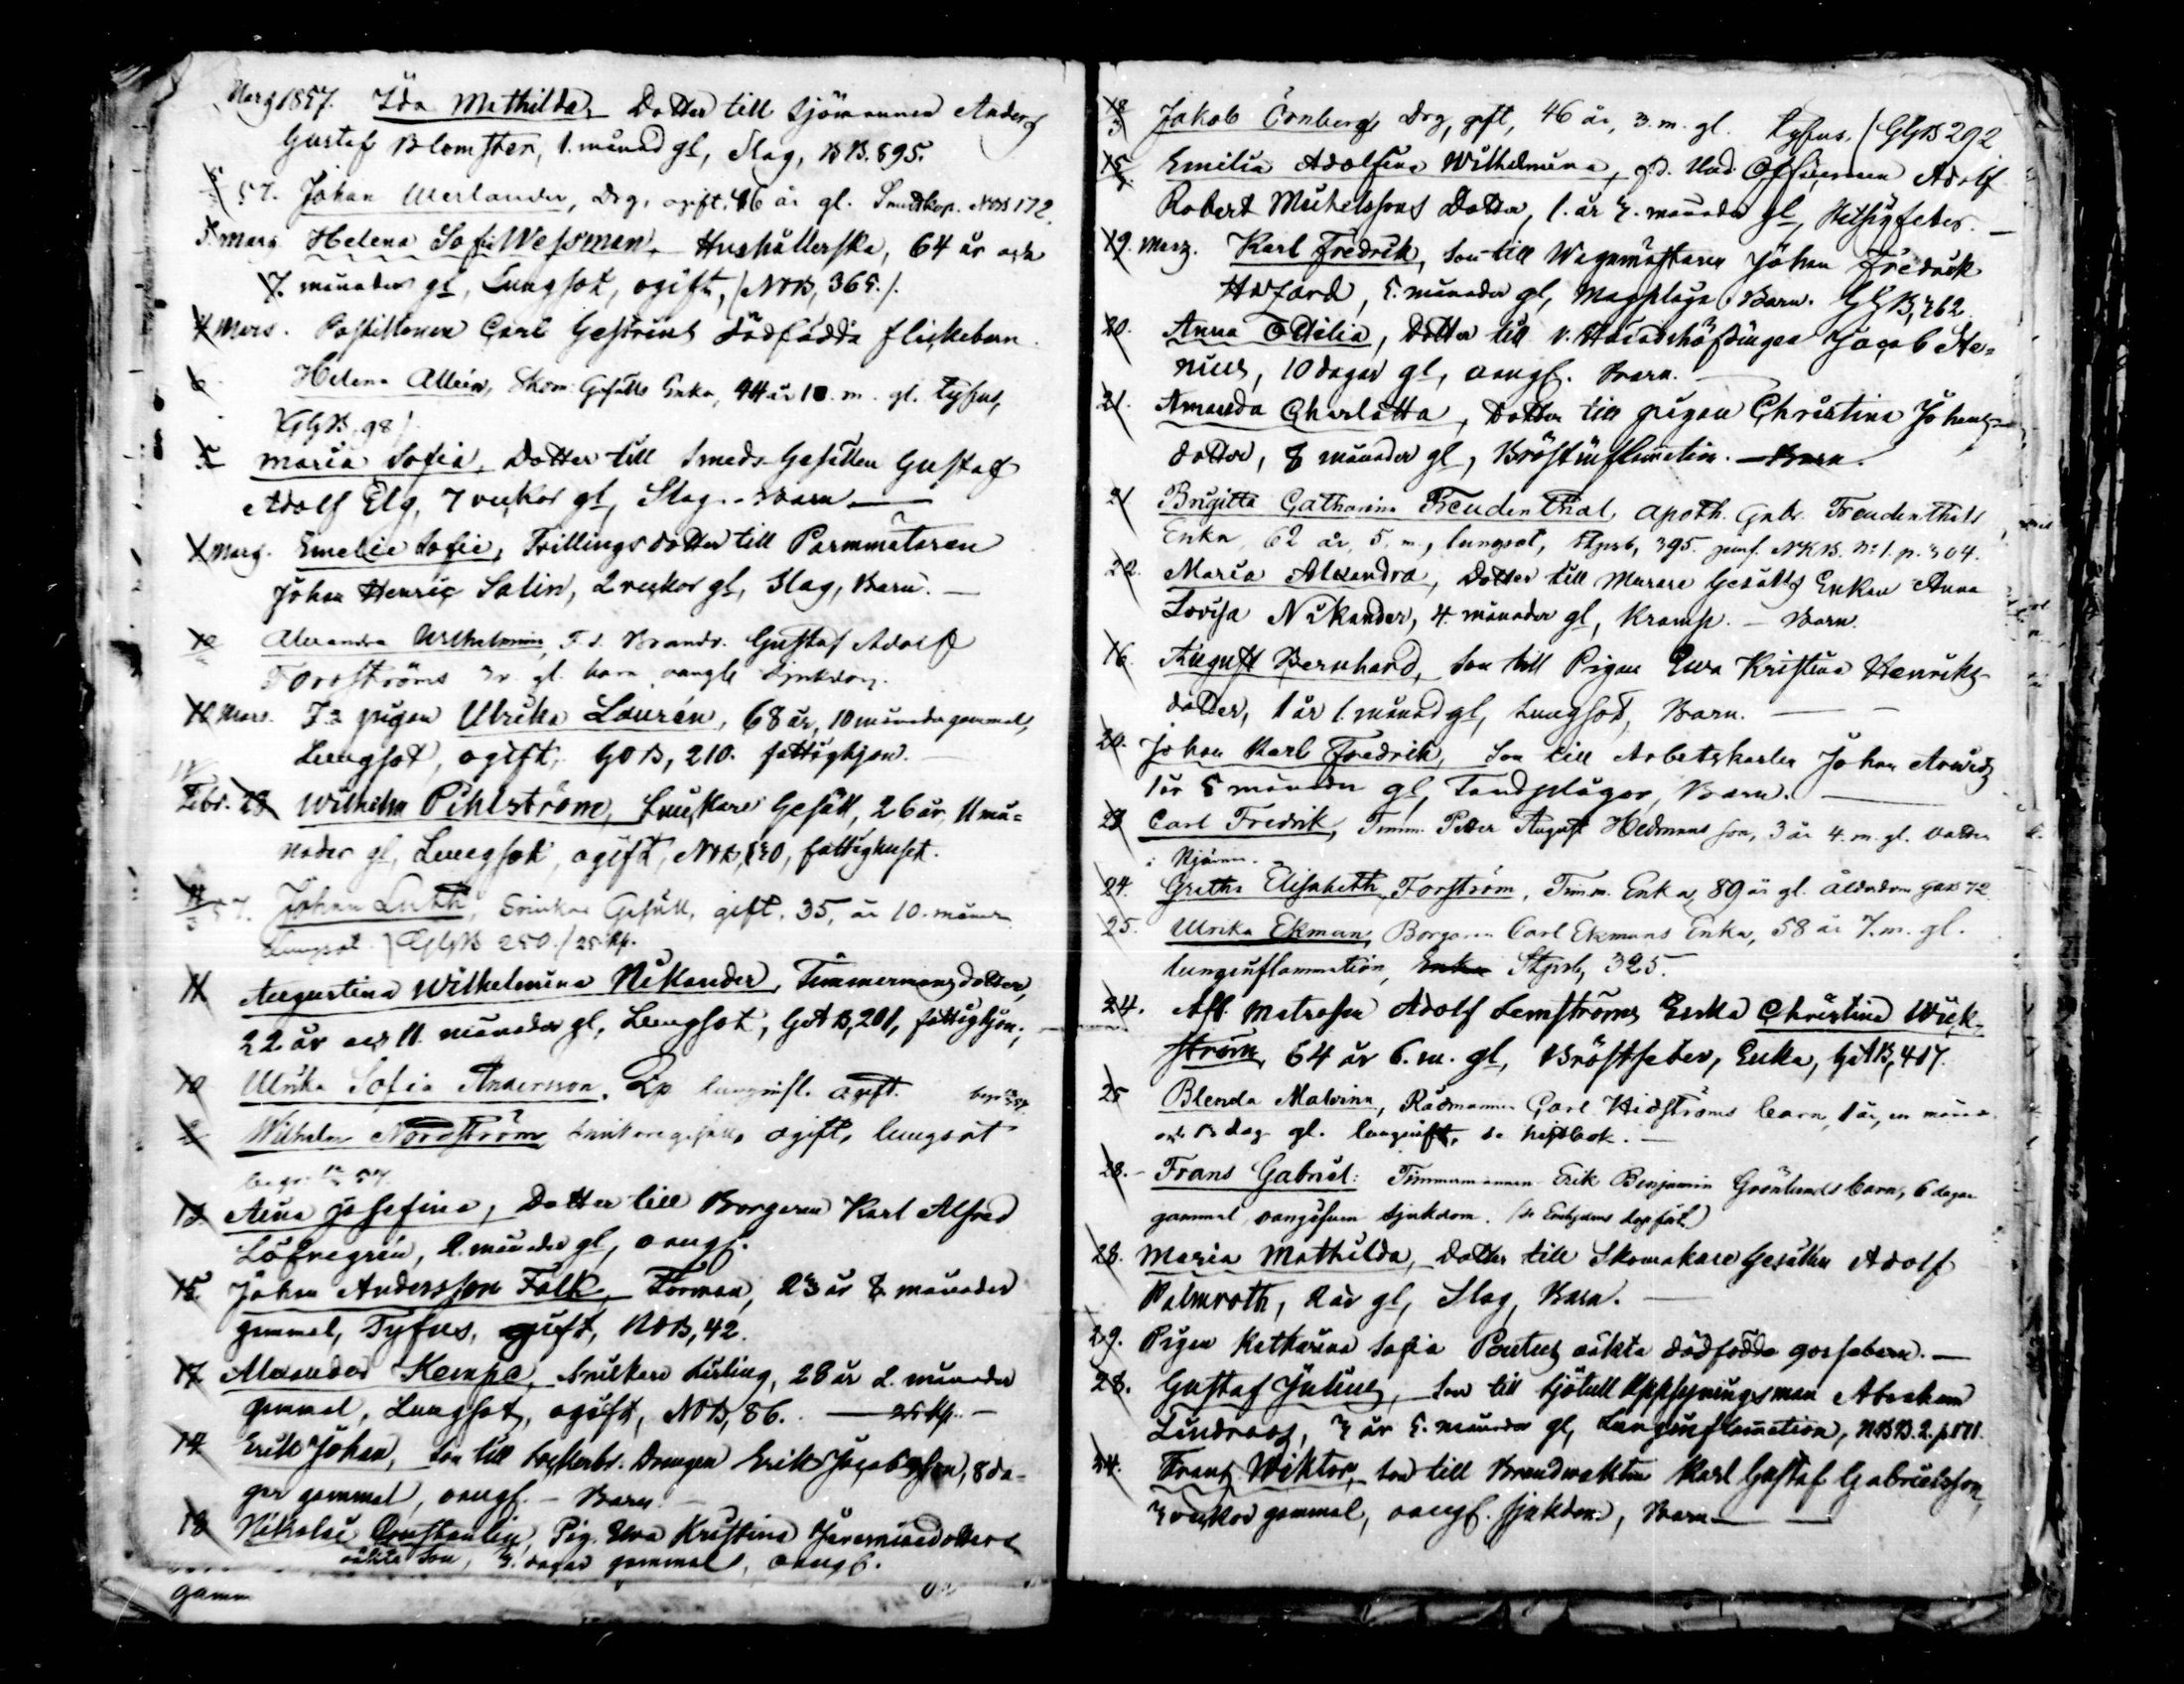 Mars 1857. Ida Mathilda, Dotter till Sjömannen Anders
Gustaf Blomster, 1. månad gl, Slag, BB. 895.
57. Johan Werlander, Drg, ogift, 46 år gl. NOB 172.
5. Mars Helena Sofi Wessman, Hushållerska, 64 år och
7. månader gl, Lungsot, ogift, (NOB, 365.).
4 Mars. Postillonen Carl Gestrins dödfödda flickebarn.
6. Helena Allén, Skom. Gesälls Enka, 44 år 10. m. gl. Tyfus,
GGB, 98).
5 Maria Sofia, Dotter till Smeds-Gesällen Gustaf
Adolf Elg, 7 veckor gl, Slag. - Barn
Mars. Emelie Sofie, Trillingsdotter till Parmmätaren
Johan Henric Salin, 2 veckor gl, Slag, Barn. —
10 Alexandra Wilhelmina, F.d. Brandv. Gustaf Adolf
Forsströms 3 v. gl. barn oangfs sjukdom.
10 Mars. F.d. pigan Ulrika Laurén, 68 år, 10 månader gammal,
Lungsot, ogift, GOB, 210. fattighjon. —
Febr. 23 Wilhelm Pihlström, Snickare Gesäll, 26 år, 11 må-
nader gl, Lungsot, ogift, fattighuset.
11/3 57. Johan Luth, Snickare Gesäll, gift, 35, år 10. månader
Lungsot. (GGB 250.) 25 Kp.
11 Augustina Wilhelmina Nikander, Timmermans dotter,
22 år och 11. månader gl, Lungsot, GAB, 201, fattighjon.
10 Ulrika Sofia Andersson, lunginfl. ogift.
2 Wilhelm Nordström, snickaregesäll, ogift, lungsot
begr.
13 Aina Josefina, Dotter till Borgaren Karl Alfred
Löfvegrén, 2. månader gl, oangf.
15 Johan Andersson Falk, Forman, 23 år 8 månader
gammal, Tyfus, gift, NOB, 42.
17 Alexander Kempe, Snickare Lärling, 28 år 2. månader
gammal, Lungsot, ogift, NOB, 86. — 25 Kp. —
14 Erik Johan, Son till Drängen Erik Jacobsson, 8 da-
gar gammal, oangf. — Barn. —
18 Nikolai Constantin, Pig. Eva Kristina Jeremiaedotters
oäkta Son, 3. dagar gammal, oangf.
gamm
18/3 Jakob Örnberg, Drg, gift, 46 år, 3. m. gl. Tyfus. (GGB 292
15/3 Emilia Adolfina Wilhelmina, Und. Officieren Adolf
Robert Michelssons Dotter, 1. år 3. månader gl, Hetsigfeber. —
19. Mars. Karl Fredrik, Son till Wågmästaren Johan Fredrik
Haxård, 5. månader gl, Magplåga. Barn.
20. Anna Otilia, Dotter till v. Häradshöfdingen Jacob Ste-
nius, 10 dagar gl, oangf. Barn. —
21. Amanda Charlotta, Dotter till pigan Christina Johans-
dotter, 8 månader gl, Bröstinflamation. — Barn.
21 Brigitta Catharina Freudenthal, apoth. Freudenthals
Enka, 62 år, 5. m., lungsot, 395. p. 304.
22. Maria Alexandra, Dotter till Murare Gesälls Enkan Anna
Lovisa Nikander, 4. månader gl, Kramp. — Barn.
16. August Bernhard, Son till Pigan Eva Kristina Henriks-
dotter, 1 år 1. månad gl, Lungsot, Barn. — —
20. Johan Karl Fredrik, Son till Arbetskarlen Johan Arwids
1 år 5 månader gl, Tandplågor, Barn. —
23 Carl Fredrik, Timm. Petter August Hedmans son, 3 år 4. m. gl. vatten
i hjernan.
24. Gretha Elisabeth Forström, Timm. Enka, 89 år gl. ålderdom 72.
25. Ulrika Ekman, Borgaren Carl Ekmans Enka, 58 år 7. m. gl.
lunginflammation, 325.
24. Afl. Matrosen Adolf Lemströms Enka Christina Wick-
ström, 64 år 6. m. gl, Bröstfeber, Enka, GAB, 417.
25 Blenda Malvina, Rådmannen Carl Hidströms barn, 1 år, en månad
och dag gl. lunginfl,
28. — Frans Gabriel: Timmermannen Erik Benjamin Grönlunds barn, 6 dagar
gammal, oangifven sjukdom.
28. Maria Mathilda, Dotter till Skomakare Gesällen Adolf
Palmroth, 2 år gl, Slag, Barn. —
29. Pigan Katharina Sofia Pontus oäkta dödfödda gossebarn. —
28. Gustaf Julius, Son till Sjötull Uppsyningsman Abraham
Lindroos, 3 år 5. månader gl, Lunginflamation,
24. Frans Wiktor, Son till Brandvakten Karl Gustaf Gabrielsson,
3 veckor gammal, oangf. sjukdom, Barn — —